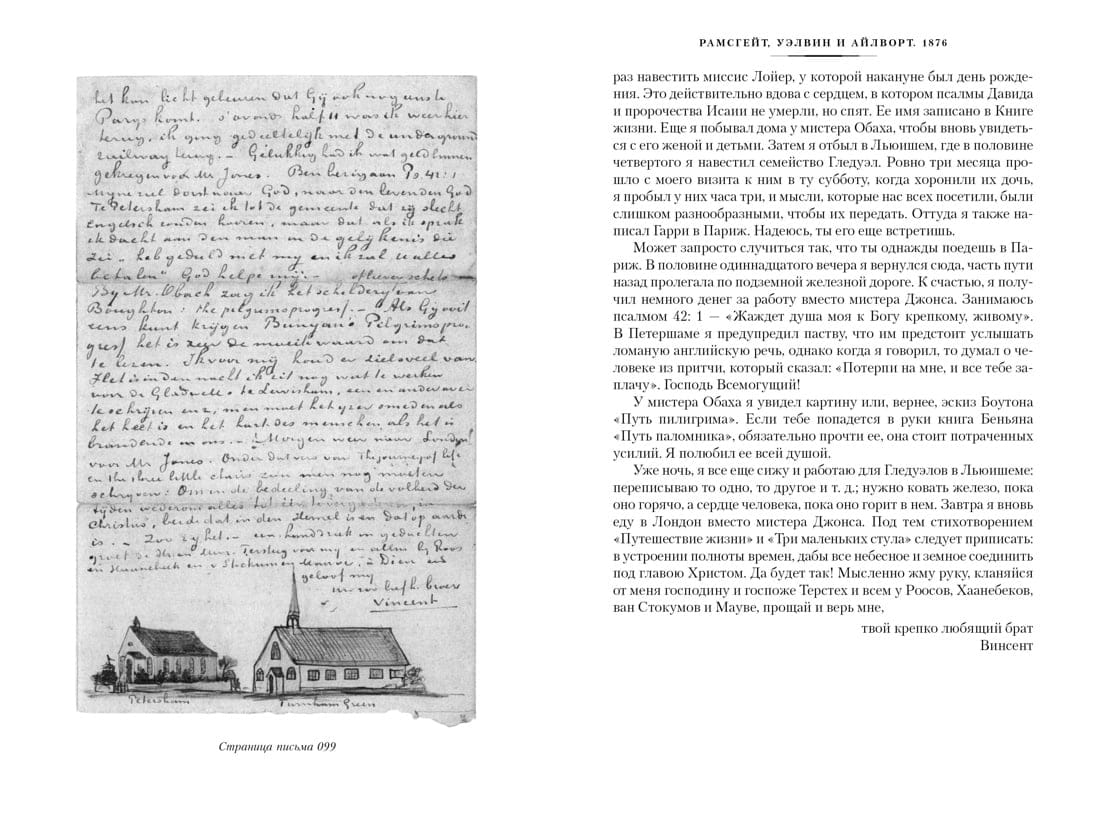 het kan licht gebeuren dat Gij ook nog eens te
Parijs komt. 's avonds half 11 was ik weer hier
terug, ik ging gedeeltelijk met de underground
railway terug. – Gelukkig had ik wat geld binnen
gekregen voor Mr Jones. Ben bezig aan Ps. 42:1
Mijne ziel dorst naar God, naar den levenden God
Te Petersham zei ik tot de gemeente dat zij slecht
Engelsch zouden hooren, maar dat als ik sprak
ik dacht aan den man in de gelijkenis die
zei „heb geduld met mij en ik zal U alles
betalen" God helpe mij. –
Bij Mr. Obach zag ik het schilderij van
Boughton: the pilgrimsprogress. – Als Gij ooit
eens kunt krijgen Bunyan's Pilgrimspro-
gress het is zeer de moeite waard om dat
te lezen. Ik voor mij houd er zielsveel van
Het is in den nacht ik zit nog wat te werken
voor de Gladwells te Lewisham, een en ander over
te schrijven enz, men moet het ijzer smeden als
het heet is en het hart des menschen als het is
brandende in ons. – Morgen weer naar London
voor Mr Jones. Onder dat vers van The journey of life
en the three little chairs zou men nog moeten
schrijven: Om in de bedeeling van de volheid der
tijden wederom alles tot één te vergaderen, in
Christus, beide dat in den Hemel is en dat op aarde
is. – Zoo zij het. – een handdruk in gedachten
groet de Heer Mevr. Tersteeg voor mij en allen bij Roos
en Haanebeek en v. Stockum en Mauve, à Dieu en
geloof mij
Uw zoo liefh. broer
Vincent
Petersham
Turnham Green
Страница письма 099
РАМСГЕЙТ, УЭЛВИН И АЙЛВОРТ. 1876
раз навестить миссис Лойер, у которой накануне был день рожде-
ния. Это действительно вдова с сердцем, в котором псалмы Давида
и пророчества Исаии не умерли, но спят. Ее имя записано в Книге
жизни. Еще я побывал дома у мистера Обаха, чтобы вновь увидеть-
ся с его женой и детьми. Затем я отбыл в Льюишем, где в половине
четвертого я навестил семейство Гледуэл. Ровно три месяца про-
шло с моего визита к ним в ту субботу, когда хоронили их дочь,
я пробыл у них часа три, и мысли, которые нас всех посетили, были
слишком разнообразными, чтобы их передать. Оттуда я также на-
писал Гарри в Париж. Надеюсь, ты его еще встретишь.
Может запросто случиться так, что ты однажды поедешь в Па-
риж. В половине одиннадцатого вечера я вернулся сюда, часть пути
назад пролегала по подземной железной дороге. К счастью, я полу-
чил немного денег за работу вместо мистера Джонса. Занимаюсь
псалмом 42: 1 — «Жаждет душа моя к Богу крепкому, живому».
В Петершаме я предупредил паству, что им предстоит услышать
ломаную английскую речь, однако когда я говорил, то думал о че-
ловеке из притчи, который сказал: «Потерпи на мне, и все тебе за-
плачу». Господь Всемогущий!
У мистера Обаха я увидел картину или, вернее, эскиз Боутона
«Путь пилигрима». Если тебе попадется в руки книга Беньяна
«Путь паломника», обязательно прочти ее, она стоит потраченных
усилий. Я полюбил ее всей душой.
Уже ночь, я все еще сижу и работаю для Гледуэлов в Льюишеме:
переписываю то одно, то другое и т. д.; нужно ковать железо, пока
оно горячо, а сердце человека, пока оно горит в нем. Завтра я вновь
еду в Лондон вместо мистера Джонса. Под тем стихотворением
«Путешествие жизни» и «Три маленьких стула» следует приписать:
в устроении полноты времен, дабы все небесное и земное соединить
под главою Христом. Да будет так! Мысленно жму руку, кланяйся
от меня господину и госпоже Терстех и всем у Роосов, Хаанебеков,
ван Стокумов и Мауве, прощай и верь мне,
твой крепко любящий брат
Винсент